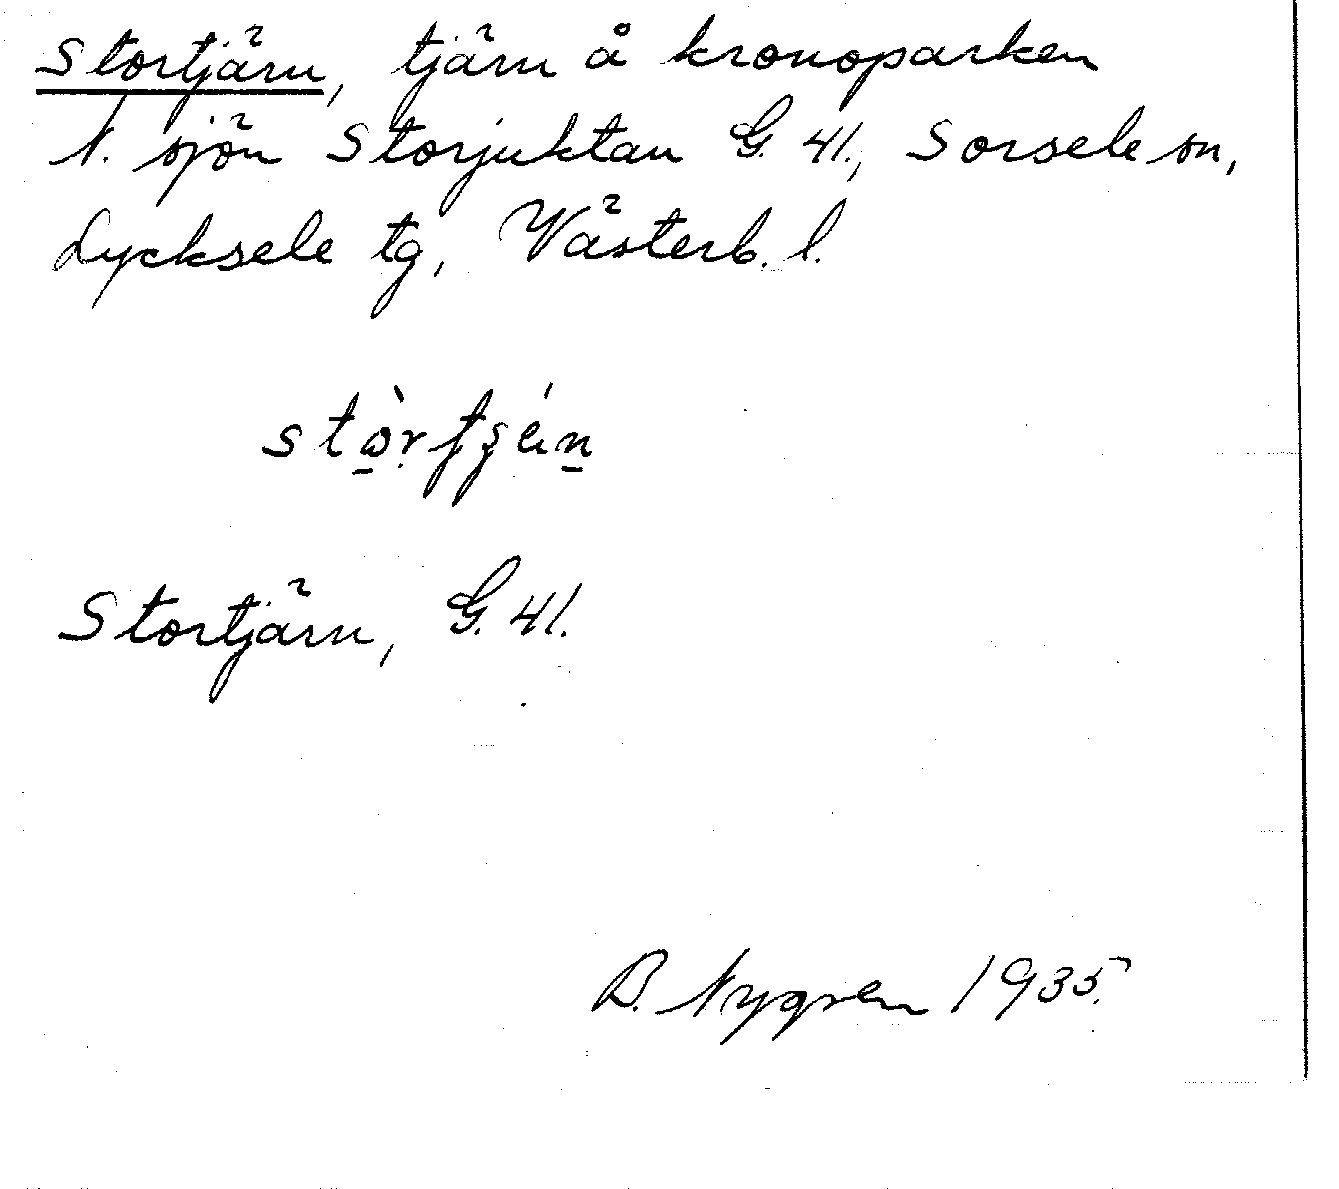 Stortjärn, tjärn å kronoparken
N. sjön Storjuktan G. 41., Sorsele sn,
Lycksele tg, Västerb. l.
Stortjärn, G. 41.
B. Nygren 1935.